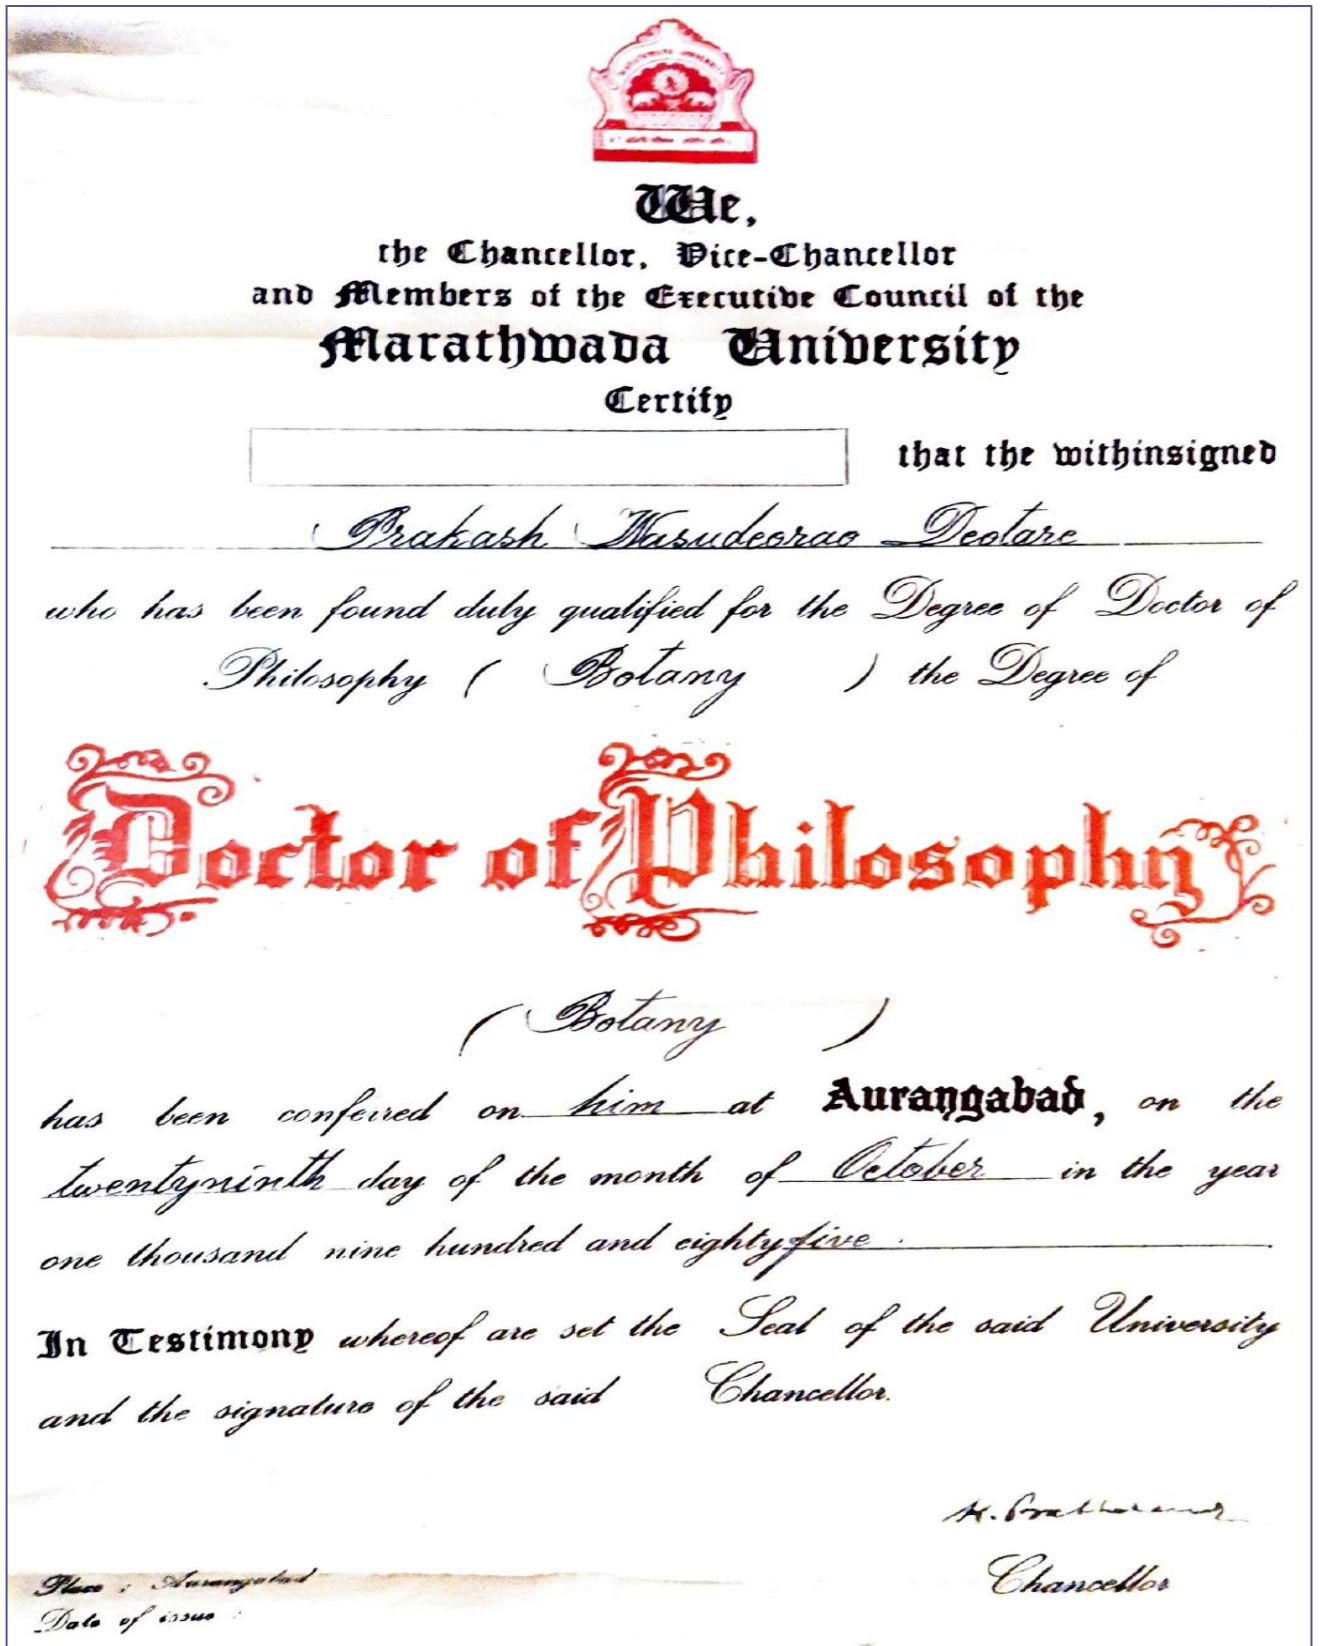 MARATHWADA UNIVERSITY
We,
the Chancellor, Vice-Chancellor
and Members of the Executive Council of the
Marathwada University
Certify
that the withinsigned
Prakash Wasudeorao Deotare
who has been found duly qualified for the Degree of Doctor of
Philosophy ( Botany ) the Degree of
Doctor of Philosophy
( Botany )
has been conferred on him at Aurangabad, on the
twentyninth day of the month of October in the year
one thousand nine hundred and eightyfive.
In Testimony whereof are set the Seal of the said University
and the signature of the said Chancellor.
Chancellor
Place : Aurangabad
Date of issue :